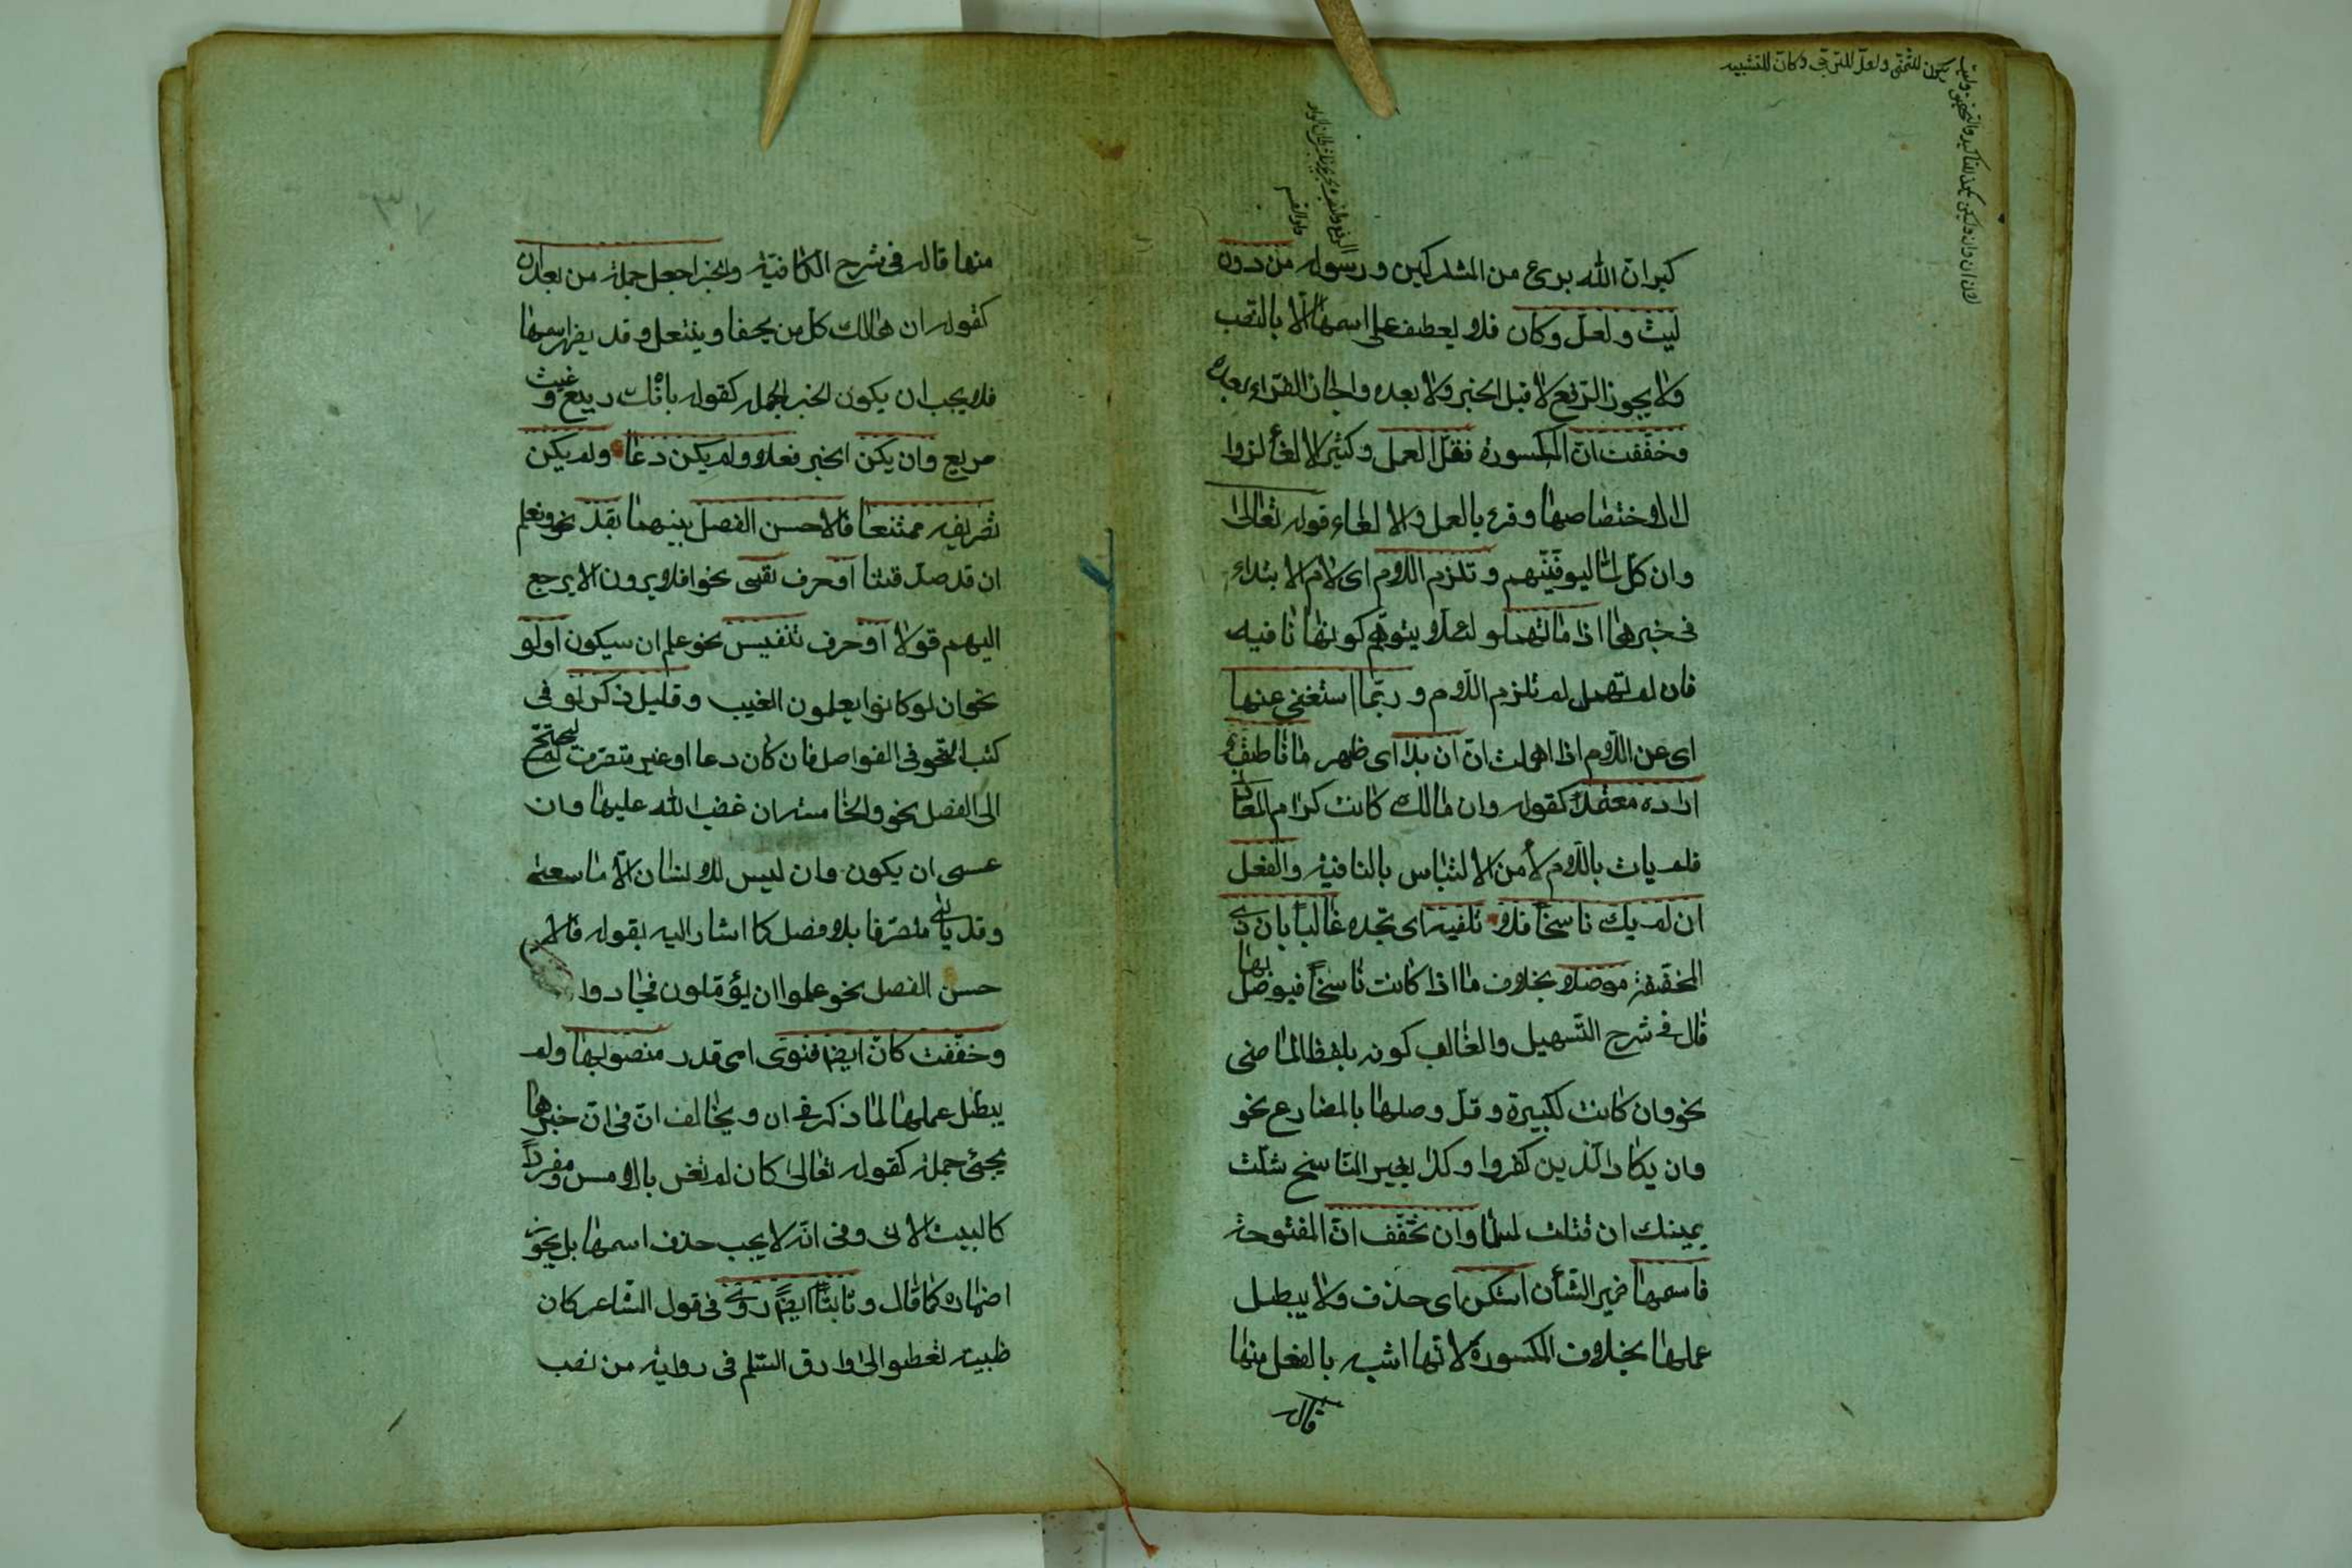 يكون للتمنى ولعل للترجى وكان للتشبيه
كبر ان الله برىء من المشركين ورسوله من دون
ليت ولعل وكان فلا يعطف على اسمها الا بالنصب
ولا يجوز الرفع لا قبل الخبر ولا بعده واجاز الفراء بعده
وخففت ان المكسورة فقل العمل وكثر الالغا لزوال
اختصاصها وقرء بالعمل والالغاء قوله تعالى
وان كل لما ليوفينهم وتلزم اللام اى لام الابتداء
فى خبرها اذا ما تهمل لئلا يتوهم كونها نافيه
فان لم تهمل لم تلزم اللام وربما استغنى عنها
اى عن اللام اذا اهملت ان ان بدا اى ظهر ما ناطق
اراده معتمدا كقوله وان مالك كانت كرام المعادن
فلم يات باللام لامن الالتباس بالنافية والفعل
ان لم يك ناسخا فلا تلفيه اى تجده غالبا بان ذى
المخففة موصلا بخلاف ما اذا كانت ناسخا فيوصل بها
قال فى شرح التسهيل والغالب كونه بلفظ الماضى
نحو وان كانت لكبيرة وقل وصلها بالمضارع نحو
وان يكاد الذين كفروا وكذا بغير الناسخ شلت
يمينك ان قتلت لمسلما وان تخفف ان المفتوحة
فاسمها ضمير الشأن استكن اى حذف ولا يبطل
عملها بخلاف المكسورة لانها اشبه بالفعل منها
قاله
منها قاله فى شرح الكافية والخبر اجعل جملة من بعد ان
كقوله ان هالك كل من يحفا وينتعل وقد يظهر اسمها
فلا يجب ان يكون الخبر الجمله كقوله بانك ربيع وغيث
مريع وان يكن الخبر فعلا ولم يكن دعا ولم يكن
تصريفه ممتنعا فالاحسن الفصل بينهما بقد نحو ونعلم
ان قد صدقتنا او حرف نفى نحو افلا يرون الا يرجع
اليهم قولا او حرف تنفيس نحو علم ان سيكون اولو
نحو ان لو كانوا يعلمون الغيب وقليل ذكر لو فى
كتب النحو فى الفواصل فان كان دعا او غير متصرف لم يحتج
الى الفصل نحو والخامسة ان غضب الله عليها وان
عسى ان يكون وان ليس للانسان الا ما سعى
وقد ياتى متصرفا بلا فصل كما اشار اليه بقوله فالا
حسن الفصل نحو علموا ان يؤملون فجادوا
وخففت كان ايضا فنوى اى قدر منصوبها ولم
يبطل عملها لما ذكر فى ان ويخالف ان فى ان خبرها
يجئ جملة كقوله تعالى كان لم تغن بالامس ومفردا
كالبيت الاتى وفى انه لا يجب حذف اسمها بل يجوز
اضماره كما قال وثابتا ايضا روى فى قول الشاعر كان
ظبية تعطو الى وارق السلم فى رواية من نصب